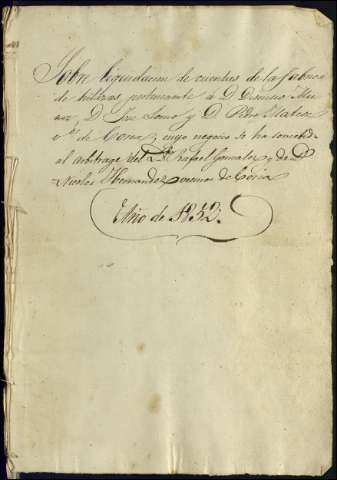 Sobre liquidacion de cuentas de la fabrica
de perteneciente a D. Dionisio
D. José y D. Pedro Mateos
v.s de Coria, cuyo negocio se ha sometido
al arbitrage del L.do Rafael Gonzalez y de D.
Nicolas Hernandez vecinos de Coria
Año de 1832.